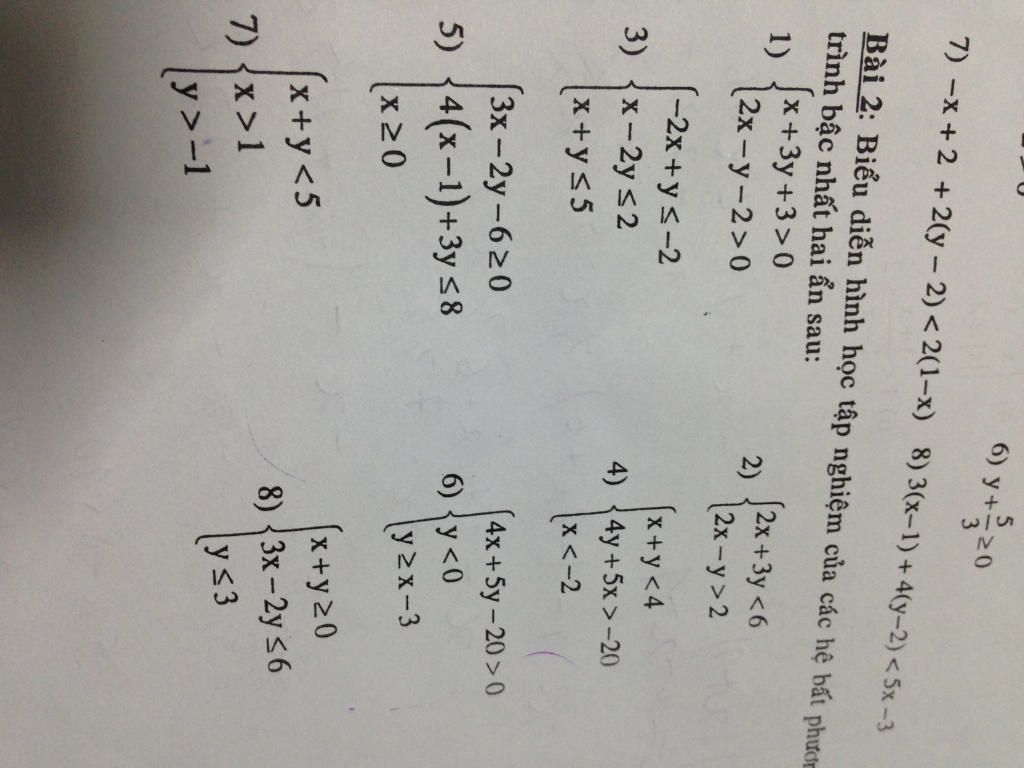 6) y + 5/3 ≥ 0
7) −x + 2 + 2(y − 2) < 2(1−x) 8) 3(x−1) + 4(y−2) < 5x −3
Bài 2: Biểu diễn hình học tập nghiệm của các hệ bất phương
trình bậc nhất hai ẩn sau:
1) { x + 3y + 3 > 0
2x − y − 2 > 0
2) { 2x + 3y < 6
2x − y > 2
3) { −2x + y ≤ −2
x − 2y ≤ 2
x + y ≤ 5
4) { x + y < 4
4y + 5x > −20
x < −2
5) { 3x − 2y − 6 ≥ 0
4(x − 1) + 3y ≤ 8
x ≥ 0
6) { 4x + 5y − 20 > 0
y < 0
y ≥ x − 3
7) { x + y < 5
x > 1
y > −1
8) { x + y ≥ 0
3x − 2y ≤ 6
y ≤ 3